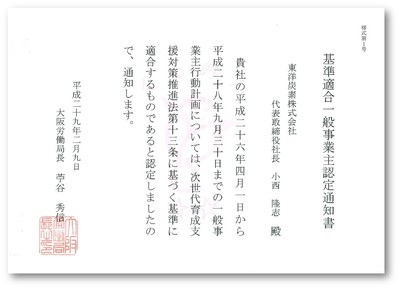 様式第1号
基準適合一般事業主認定通知書
東洋炭素株式会社
代表取締役社長 小西 隆志 殿
貴社の平成二十六年四月一日から
平成二十八年九月三十日までの一般事
業主行動計画については、次世代育成支
援対策推進法第十三条に基づく基準に
適合するものであると認定しましたの
で、通知します。
平成二十九年二月九日
大阪労働局長 苧谷 秀信